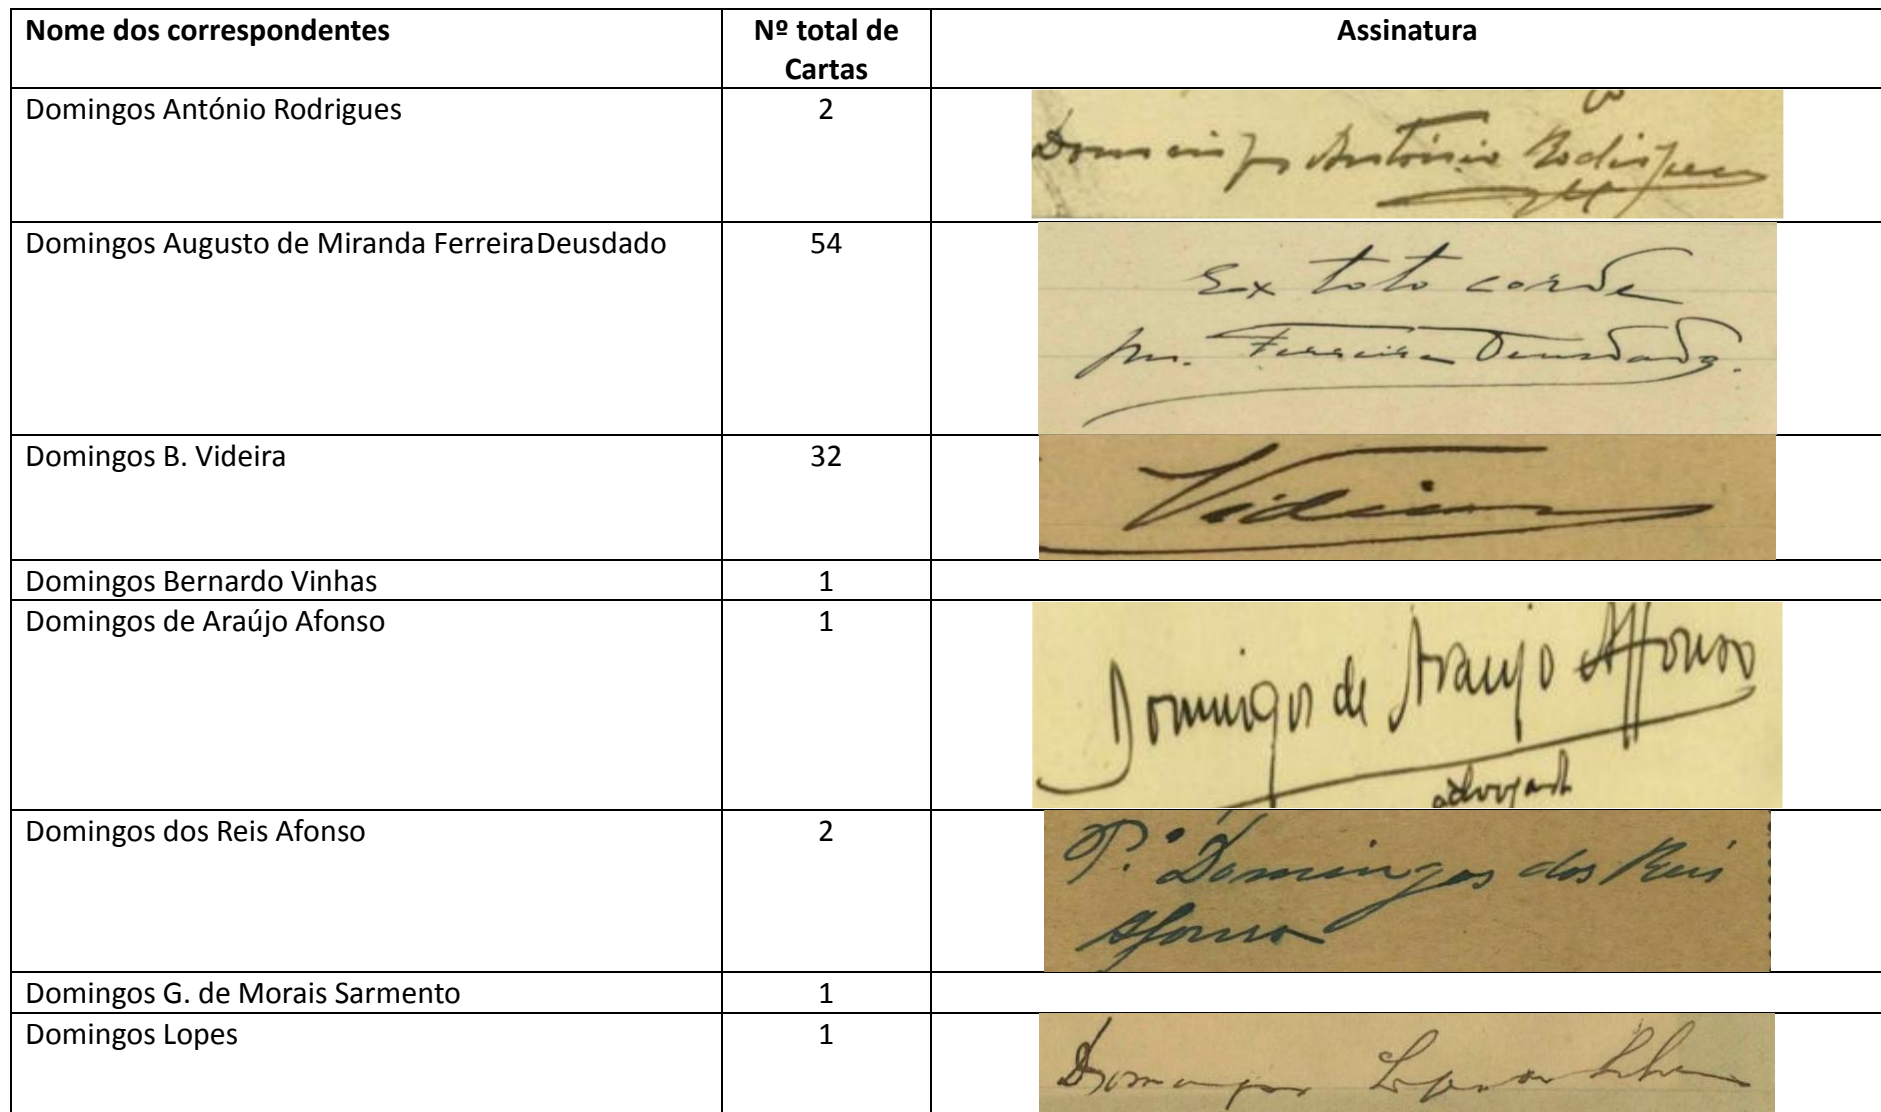 Nome dos correspondentes
Nº total de
Cartas
Assinatura
Domingos António Rodrigues
2
Domingos António Rodrigues
Domingos Augusto de Miranda FerreiraDeusdado
54
Ex toto corde
M. Ferreira Deusdado.
Domingos B. Videira
32
Videira
Domingos Bernardo Vinhas
1
Domingos de Araújo Afonso
1
Domingos de Araujo Affonso
advogado
Domingos dos Reis Afonso
2
P.e Domingos dos Reis
Afonso
Domingos G. de Morais Sarmento
1
Domingos Lopes
1
Domingos Lopes